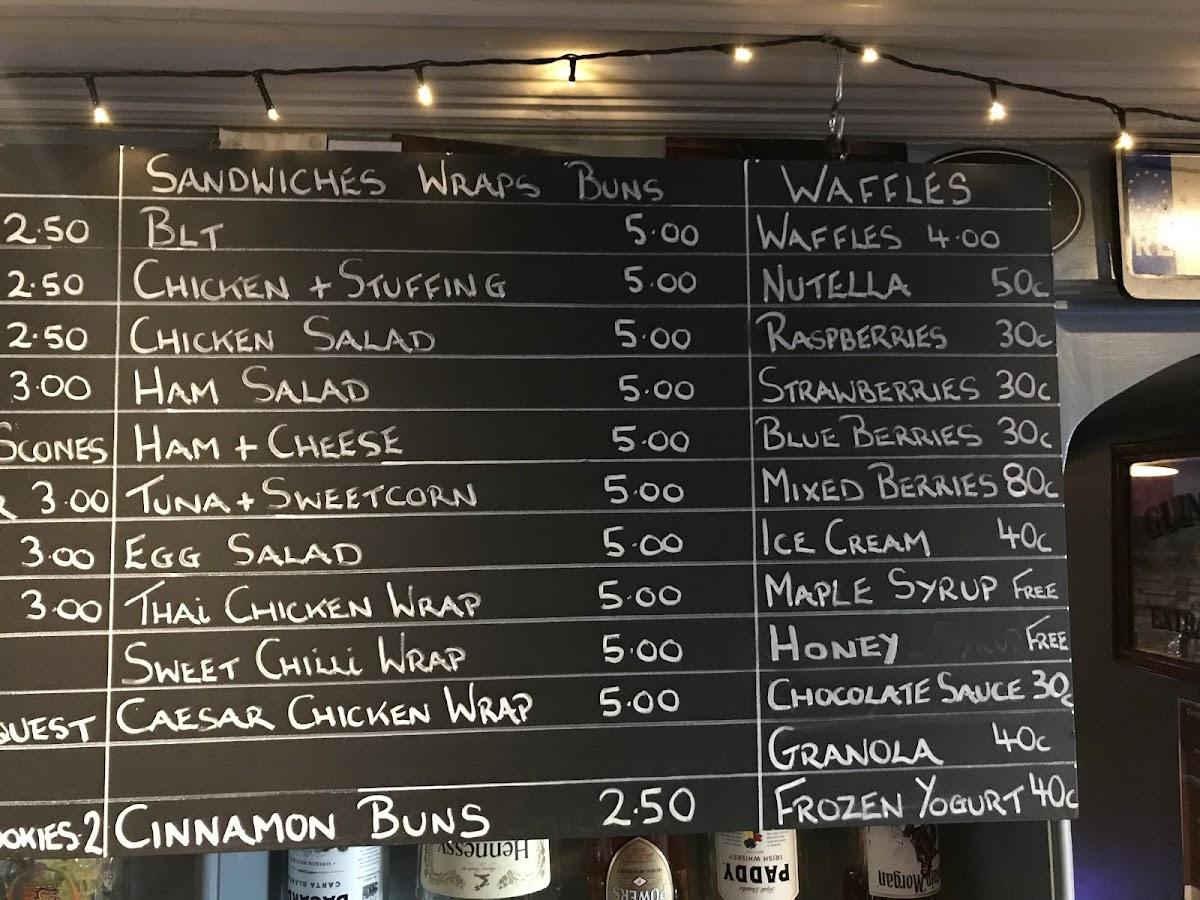 SANDWICHES WRAPS BUNS
BLT 5.00
CHICKEN + STUFFING 5.00
CHICKEN SALAD 5.00
HAM SALAD 5.00
HAM + CHEESE 5.00
TUNA + SWEETCORN 5.00
EGG SALAD 5.00
THAI CHICKEN WRAP 5.00
SWEET CHILLI WRAP 5.00
CAESAR CHICKEN WRAP 5.00
CINNAMON BUNS 2.50
WAFFLES
WAFFLES 4.00
NUTELLA 50c
RASPBERRIES 30c
STRAWBERRIES 30c
BLUE BERRIES 30c
MIXED BERRIES 80c
ICE CREAM 40c
MAPLE SYRUP FREE
HONEY FREE
CHOCOLATE SAUCE 30c
GRANOLA 40c
FROZEN YOGURT 40c
2.50
2.50
2.50
3.00
SCONES
3.00
3.00
3.00
Hennessy
POWERS
PADDY
IRISH WHISKEY
CARTA
Morgan